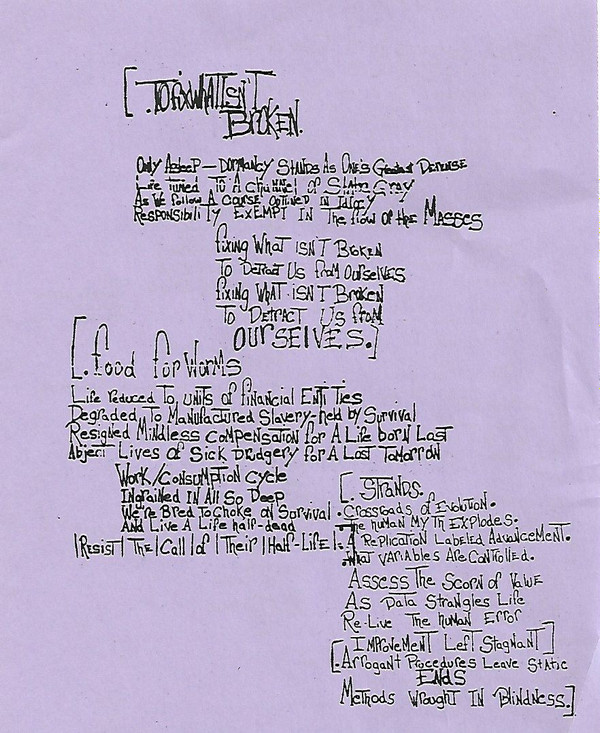 [. TO fix WHAT ISN'T
BROKEN.
ONLY ASLEEP — DORMANCY STANDS AS ONE'S Greatest DEFENSE
Life TUNED TO A CHANNEL of STATIC GRAY
AS WE follow A COURSE OUTLINED IN Idiocy
RESPONSIBILITY EXEMPT IN THE flow of the MASSES
fixING WHAT ISN'T BROKEN
TO DETRACT US from OURSELVES
fixING WHAT ISN'T BROKEN
TO DETRACT US from
OURSELVES.]
[. food for WORMS
Life reduced TO UNITS of FINANCIAL ENTITIES
Degraded TO MANUFACTURED Slavery-held by SURVIVAL
Resigned MINDLESS COMPENSATION for A Life born LAST
Abject Lives of SICK Drudgery for A LAST TOMORROW
WORK/CONSUMPTION CYCLE
INGRAINED IN All SO DEEP
We're BRED TO CHOKE ON SURVIVAL
AND LIVE A Life half-dead
|Resist|The|Call|of|Their|Half-Life|.
[. STRANDS.
.Crossroads of EVOLUTION.
.The human MYTH EXPLODES.
.A REPLICATION LABELED ADVANCEMENT.
.WHAT VARIABLES ARE CONTROLLED.
ASSESS THE SCORN of VALUE
AS DATA STRANGLES Life
Re-Live THE HUMAN ERROR
IMPROVEMENT LEFT STAGNANT]
[.Arrogant Procedures LEAVE STATIC
ENDS
METHODS WROUGHT IN BLINDNESS.]